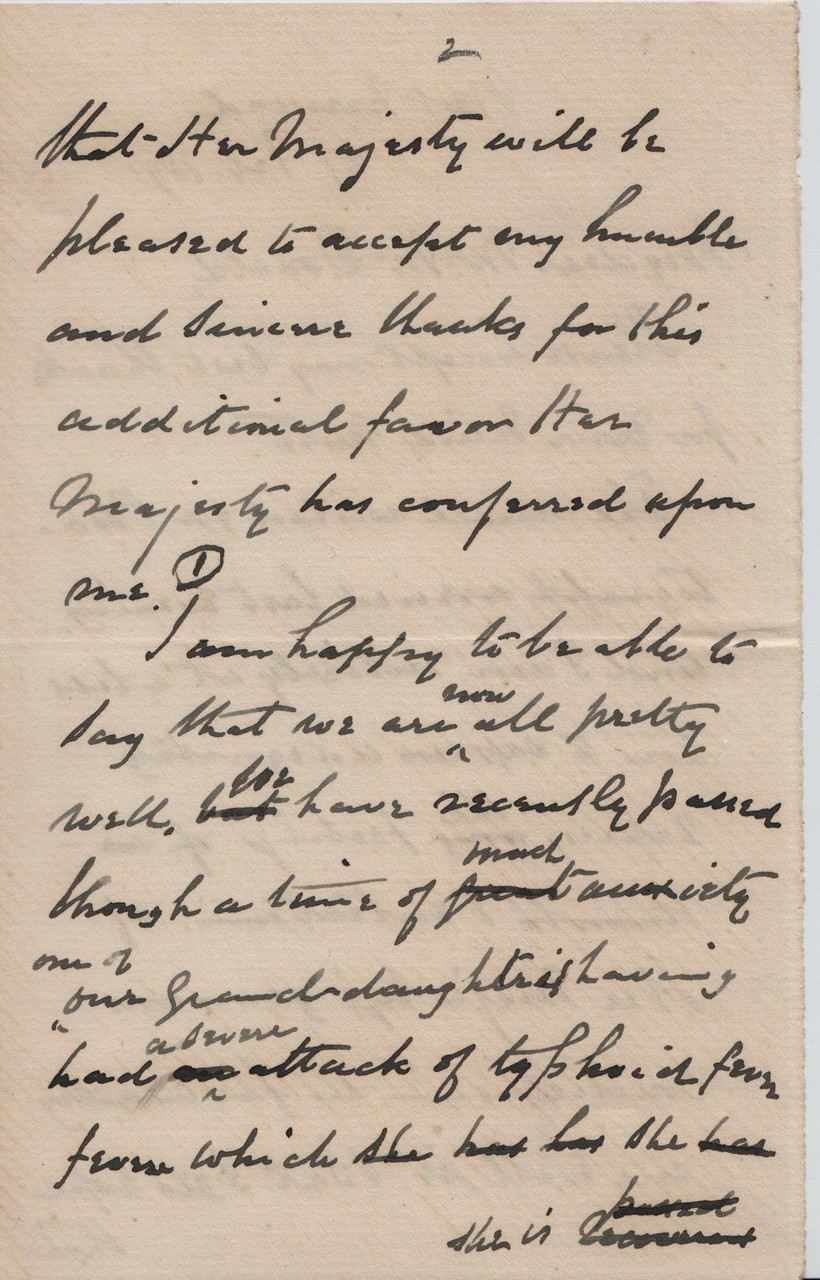 2
that Her Majesty will be
pleased to accept my humble
and sincere thanks for this
additional favor Her
Majesty has conferred upon
me. 1
I am happy to be able to
now
say that we are ^ all pretty
we
well, but have recently passed
much
though a time of great anxiety
one of
^ our Grand-daughters having
a severe
had an ^ attack of typhoid fever
fever which she has has she has
passed
she is recovered